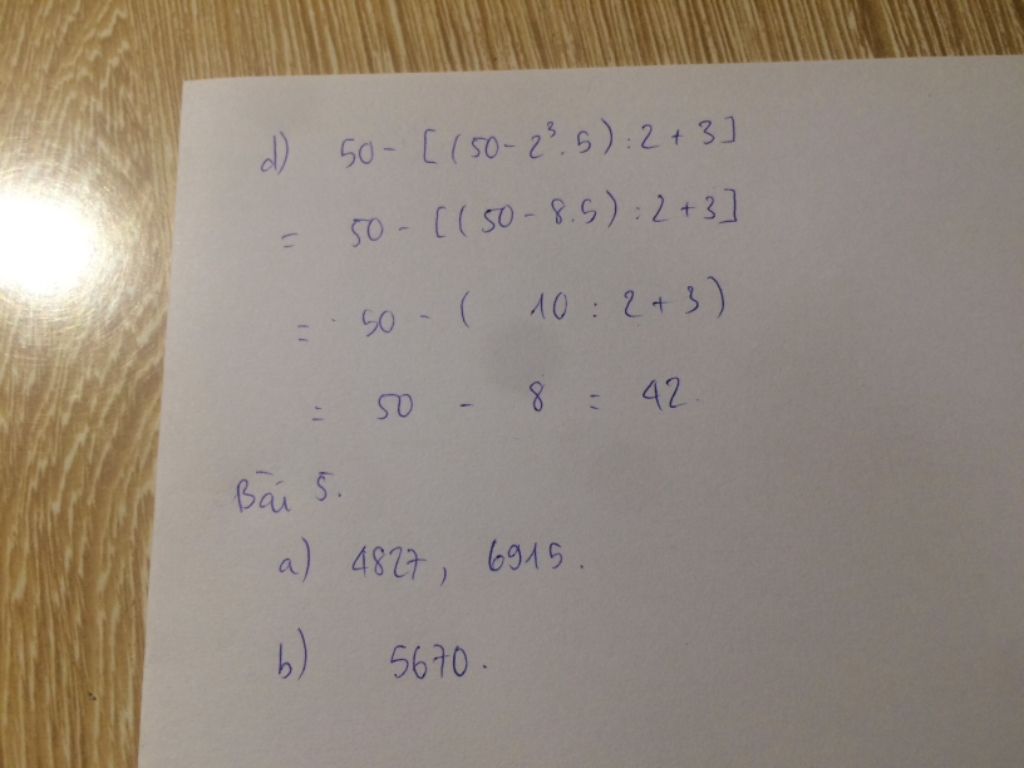 d) 50 - [(50 - 2³.5) : 2 + 3]
= 50 - [(50 - 8.5) : 2 + 3]
= 50 - ( 10 : 2 + 3)
= 50 - 8 = 42
Bài 5.
a) 4827, 6915.
b) 5670.